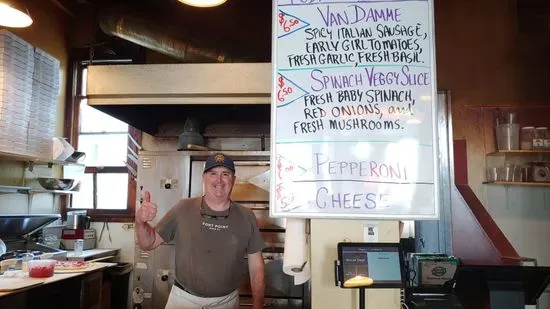 $6.50
VAN DAMME
SPICY ITALIAN SAUSAGE,
EARLY GIRL TOMATOES,
FRESH GARLIC, FRESH BASIL.
$6.50
SPINACH VEGGY SLICE
FRESH BABY SPINACH,
RED ONIONS, and
FRESH MUSHROOMS.
PEPPERONI
CHEESE
FORT POINT